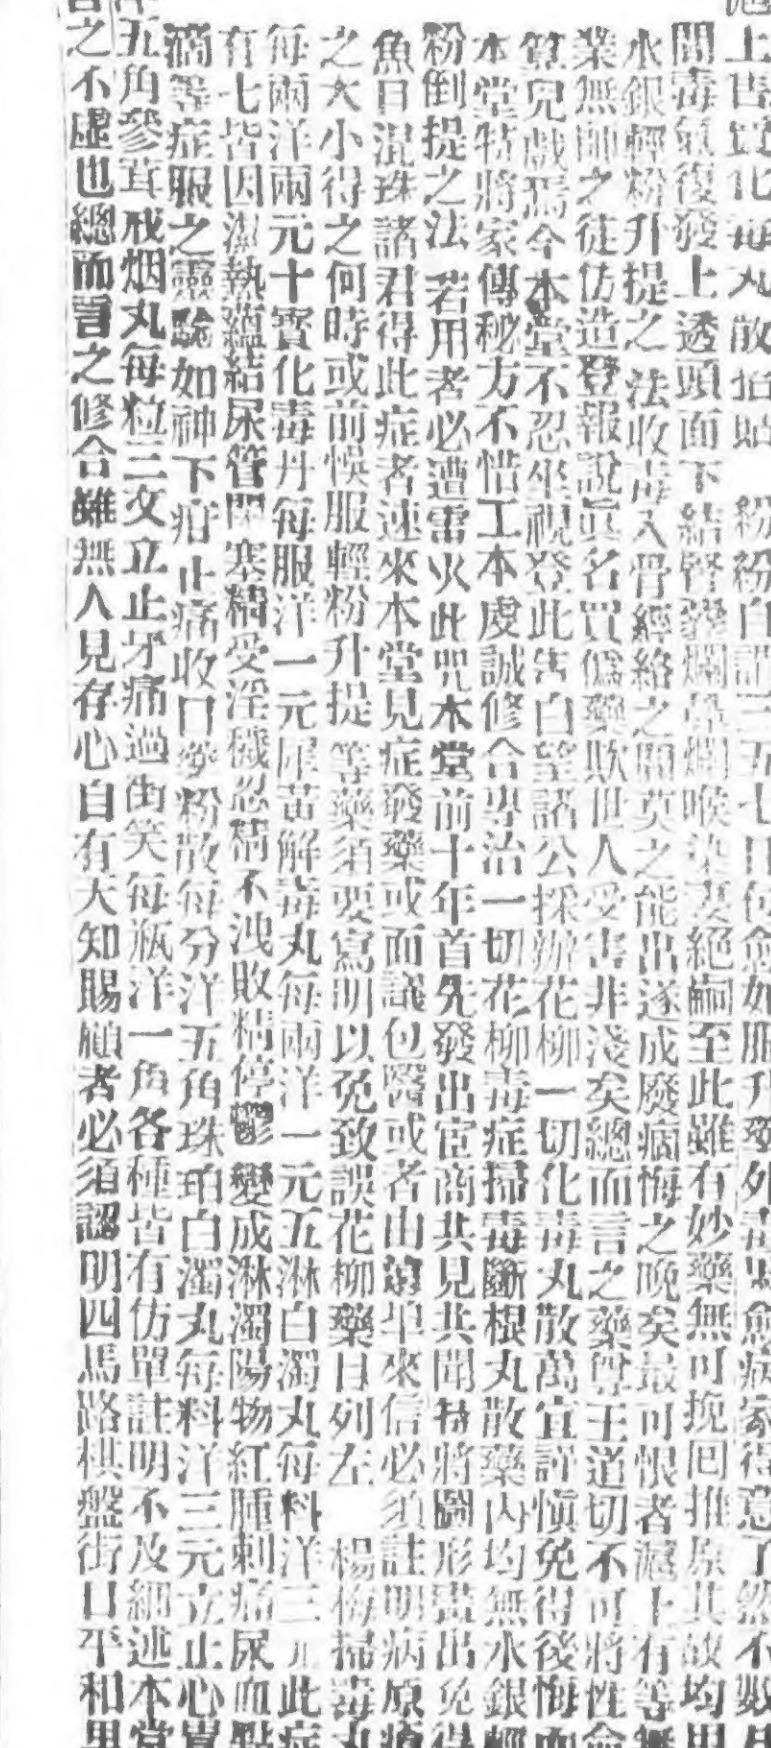 上售賣化毒丸散招貼 紛紛自謂三五七日包愈如服升藥外毒雖愈病家得意了然不數月
間毒氣復發上透頭面下結腎囊爛鼻爛喉染妻絕嗣至此雖有妙藥無可挽囘推原其故均用
水銀輕粉升提之法收毒入骨經絡之間莫之能出遂成廢痼悔之晚矣最可恨者滬上有等無
業無師之徒仿造登報說真名買僞藥欺世人受害非淺矣總而言之藥尊王道切不可將性命
算兒戲焉今本堂不忍坐視登此告白望諸公採辦花柳一切化毒丸散萬宜謹愼免得後悔而
本堂特將家傳秘方不惜工本虔誠修合專治一切花柳毒症掃毒斷根丸散藥內均無水銀輕
粉倒提之法 若用者必遭雷火此咒本堂前十年首先發出宦商共見共聞特將圖形畫出免得
魚目混珠諸君得此症者速來本堂見症發藥或面議包醫或者由輪埠來信必須註明病原
之大小得之何時或前悞服輕粉升提 等藥須要寫明以免致誤花柳藥目列左 楊梅掃毒丸
每兩洋兩元十寶化毒丹每服洋一元犀黃解毒丸每兩洋一元五淋白濁丸每料洋三元此症
有七皆因濕熱蘊結尿管閉塞精受淫穢忍精不洩敗精停鬱變成淋濁陽物紅腫刺痛尿血點
滴等症服之靈驗如神下疳止痛收口藥粉散每分洋五角珠珀白濁丸每料洋三元立止心胃
五角參茸戒烟丸每粒三文立止牙痛過街笑每瓶洋一角各種皆有仿單註明不及細述本堂
之不虛也總而言之修合雖無人見存心自有天知賜顧者必須認明四馬路棋盤街口平和里